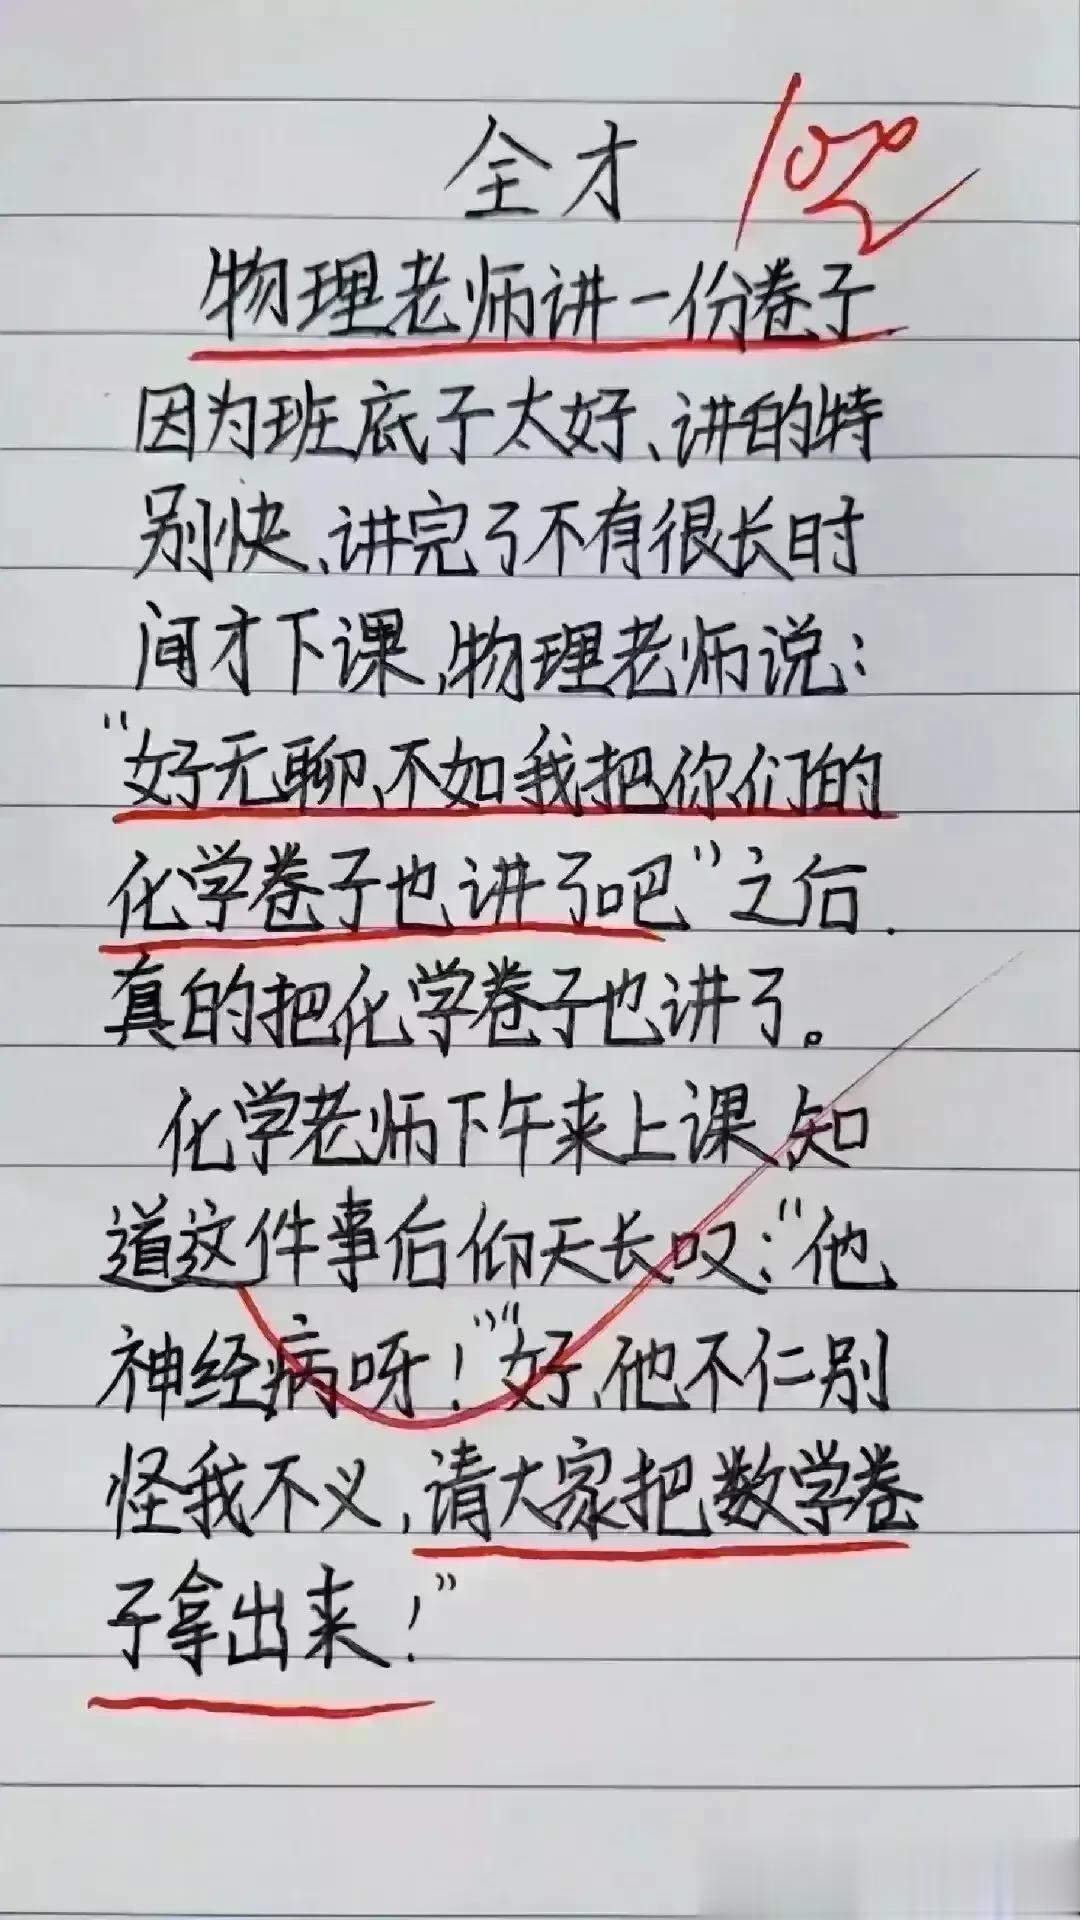 全才
100
物理老师讲一份卷子
因为班底子太好、讲的特
别快、讲完了不有很长时
间才下课,物理老师说:
“好无聊、不如我把你们的
化学卷子也讲了吧”之后.
真的把化学卷子也讲了。
化学老师下午来上课、知
道这件事后仰天长叹:“他
神经病呀!”“好、他不仁别
怪我不义,请大家把数学卷
子拿出来!”